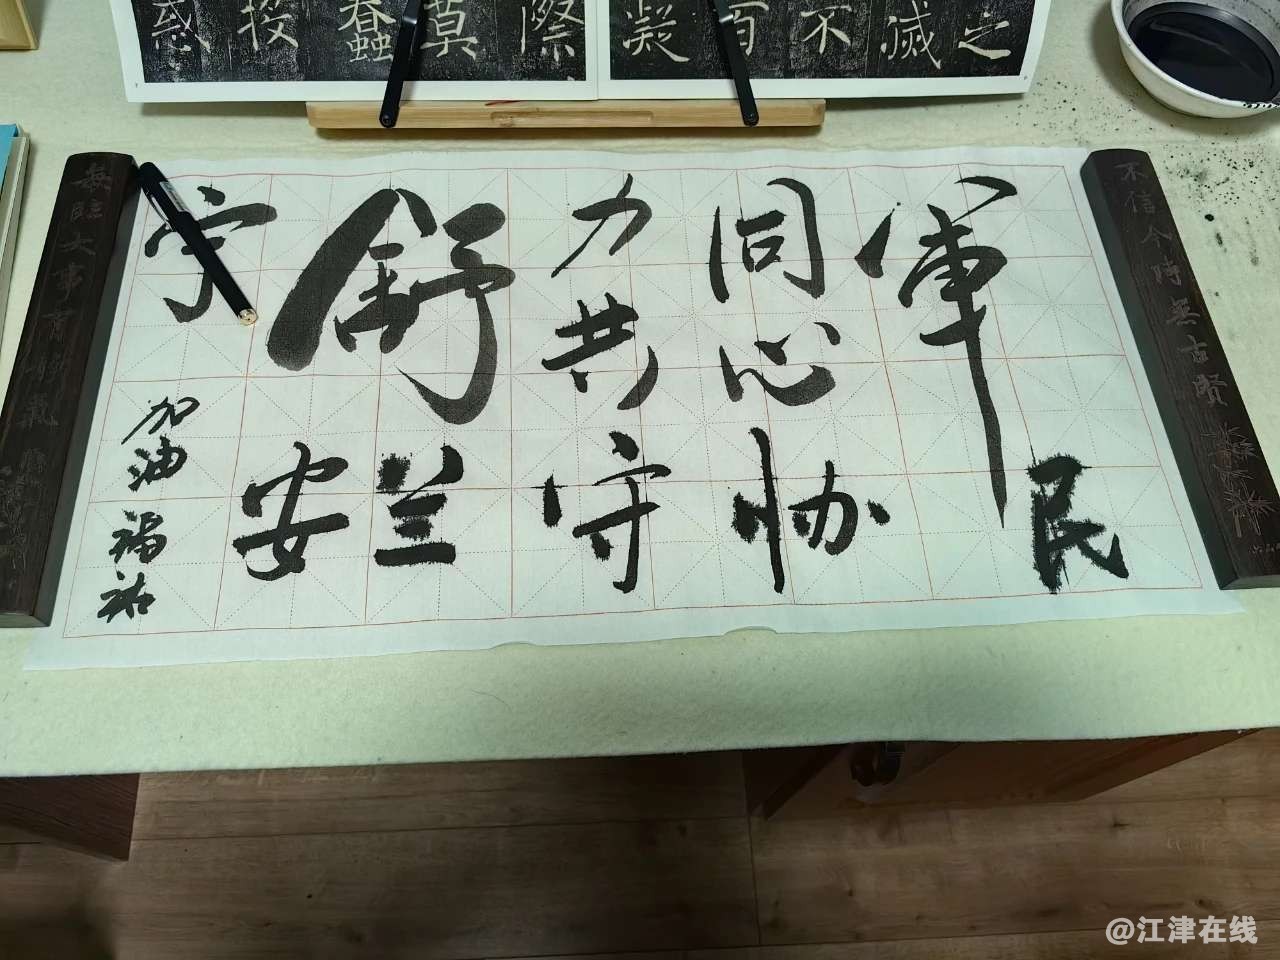 之
滅
不
百
凝
際
莫
蠢
投
惑
不信今時無古賢
軍民
同心协
力共守
舒兰
安
宁
加油福祐
每臨大事有靜氣
@江津在线